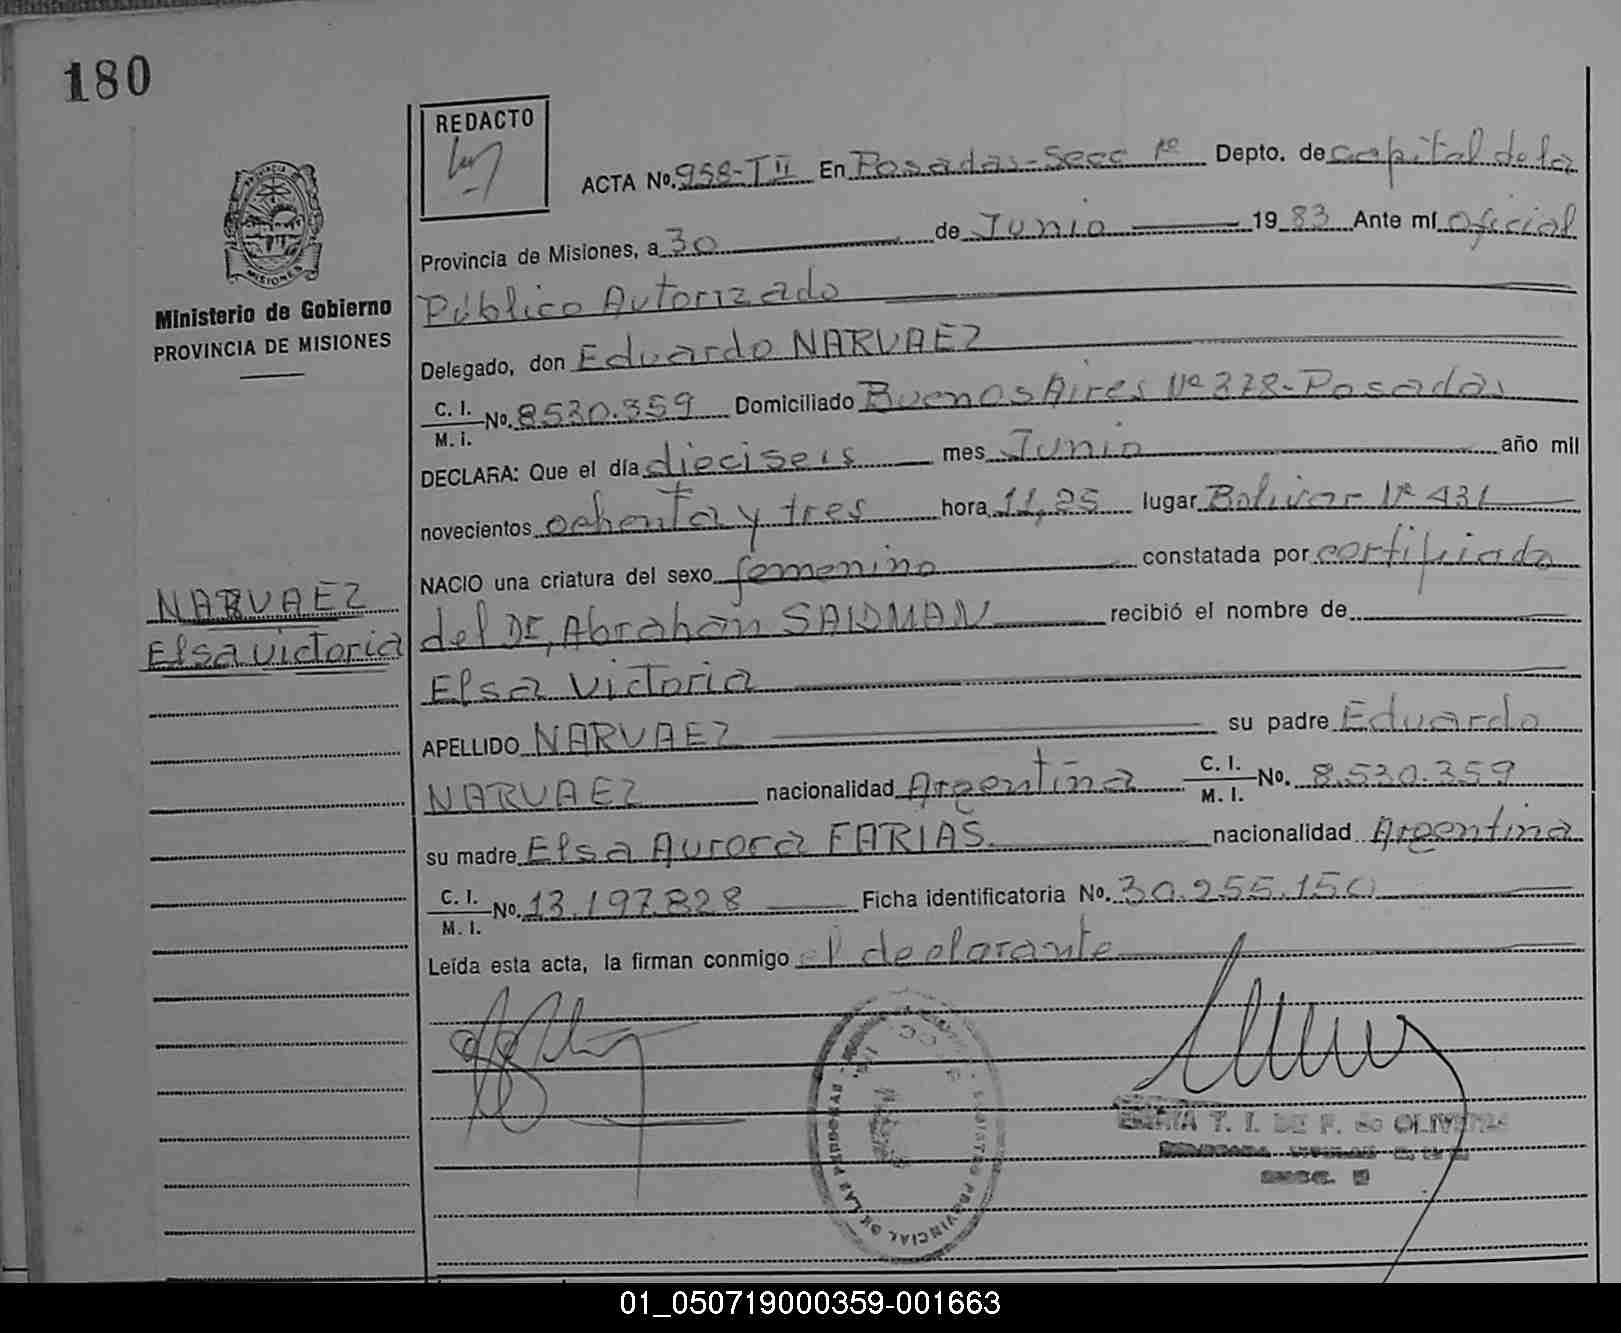 180
REDACTO
ACTA No. 958-T II En Posadas-Secc 1º Depto. de capital de la
Provincia de Misiones, a 30 de Junio 1983 Ante mí oficial
Público Autorizado
Ministerio de Gobierno
PROVINCIA DE MISIONES
Delegado, don Eduardo NARVAEZ
C. I.
M. I. No. 8530.359 Domiciliado Buenos Aires Nº 378-Posadas
DECLARA: Que el día dieciseis mes Junio año mil
novecientos ochenta y tres hora 11,25 lugar Bolivar Nº 431
NACIO una criatura del sexo femenino constatada por certificado
NARVAEZ
Elsa Victoria
del Dr, Abrahan recibió el nombre de
Elsa Victoria
APELLIDO NARVAEZ su padre Eduardo
NARVAEZ nacionalidad Argentina C. I.
M. I. No. 8.530.359
su madre Elsa Aurora FARIAS. nacionalidad Argentina
C. I.
M. I. No. 13.197.828 Ficha identificatoria No. 30.255.150
Leída esta acta, la firman conmigo el declarante
REGISTRO PROVINCIAL DE LAS PERSONAS
T. I. DE F. de OLIVEIRA
SECC.
01_050719000359-001663